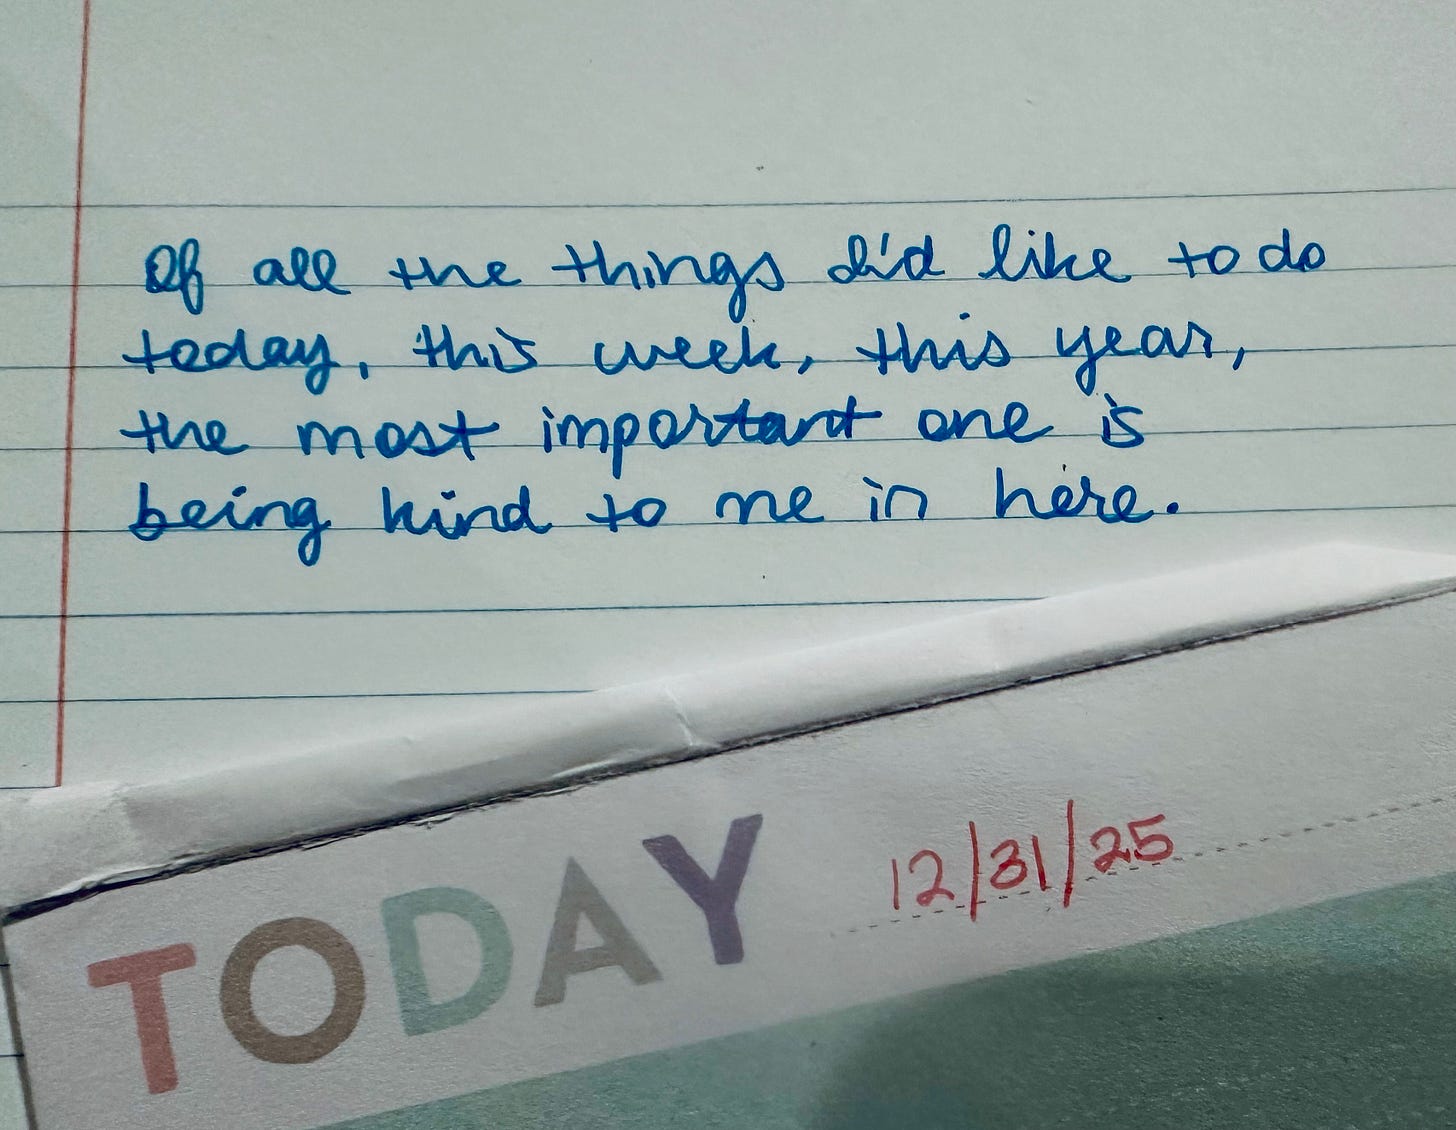 Of all the things I'd like to do
today, this week, this year,
the most important one is
being kind to me in here.
TODAY 12/31/25